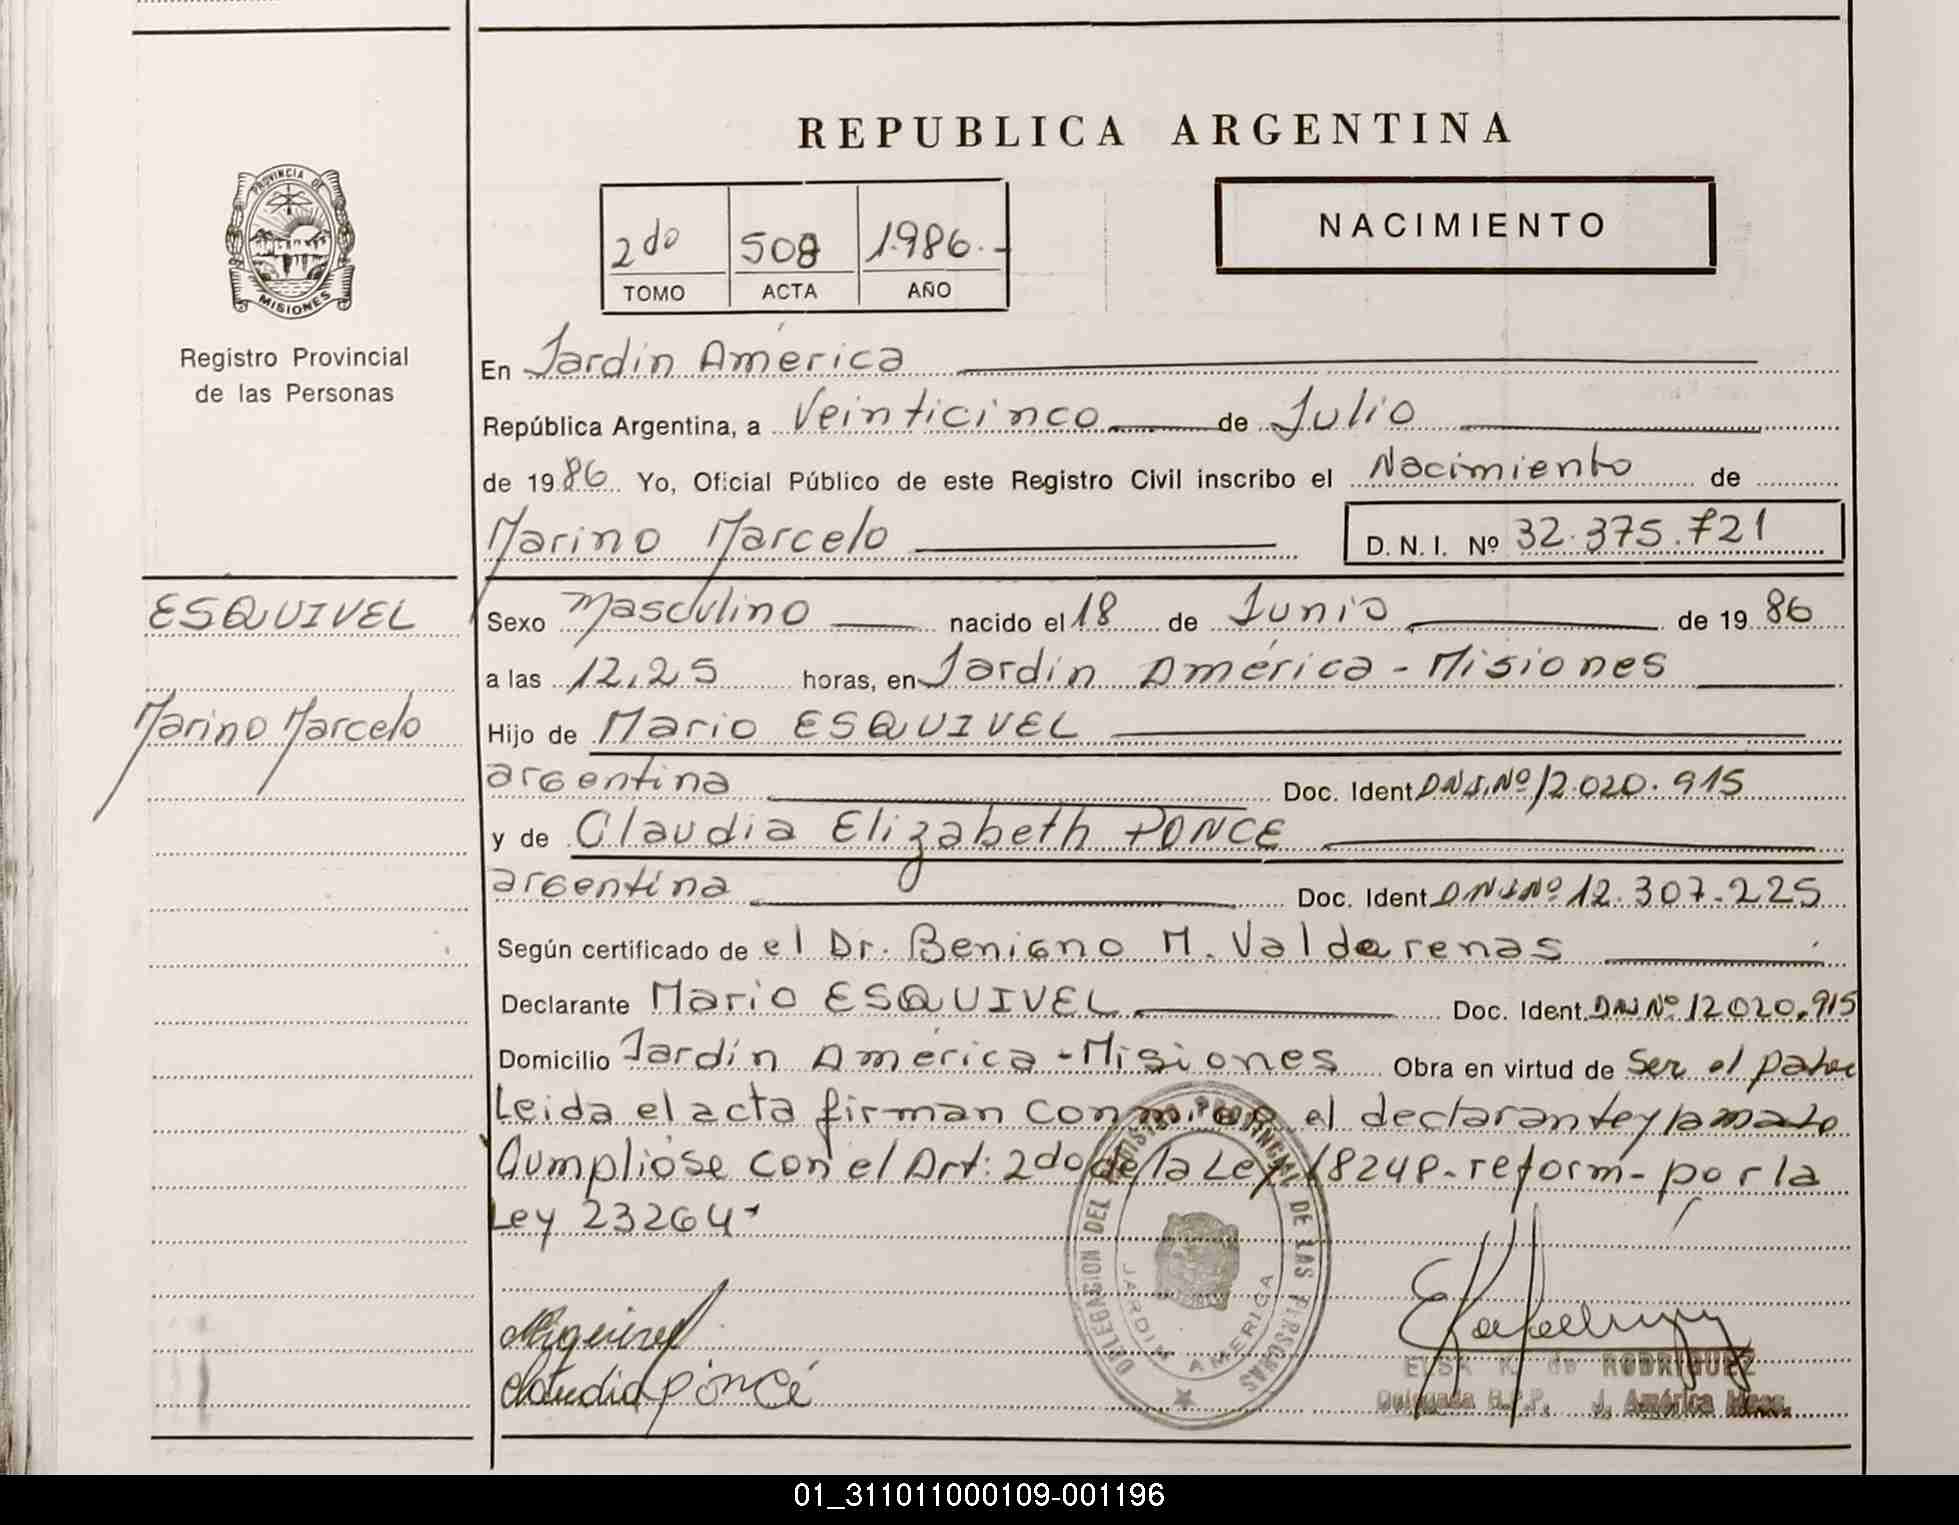 REPUBLICA ARGENTINA
PROVINCIA DE
MISIONES
Registro Provincial
de las Personas
2do 508 1986.-
TOMO ACTA AÑO
NACIMIENTO
En Jardín América
República Argentina, a Veinticinco de Julio
de 1986 Yo, Oficial Público de este Registro Civil inscribo el Nacimiento de
Marino Marcelo D. N. I. Nº 32.375.721
ESQUIVEL
Marino Marcelo
Sexo Masculino nacido el 18 de Junio de 1986
a las 12,25 horas, en Jardín América - Misiones
Hijo de Mario ESQUIVEL
argentina Doc. Ident DNI.Nº 12.020.915
y de Claudia Elizabeth PONCE
argentina Doc. Ident DNINº 12.307.225
Según certificado de el Dr. Benigno M. Valdarenas
Declarante Mario ESQUIVEL Doc. Ident. DNINº 12020.915
Domicilio Jardín América - Misiones Obra en virtud de Ser el padre
Leida el acta firman conmigo el declarante y la madre
Cumpliose con el Art: 2do de la Ley 18248-reform- por la
Ley 23264-
DELEGACION DEL REGISTRO PROVINCIAL DE LAS PERSONAS
JARDIN AMERICA
Claudia Poncé
ELSA K. de RODRIGUEZ
Delegada R.P.P. J. América Mnes.
01_311011000109-001196